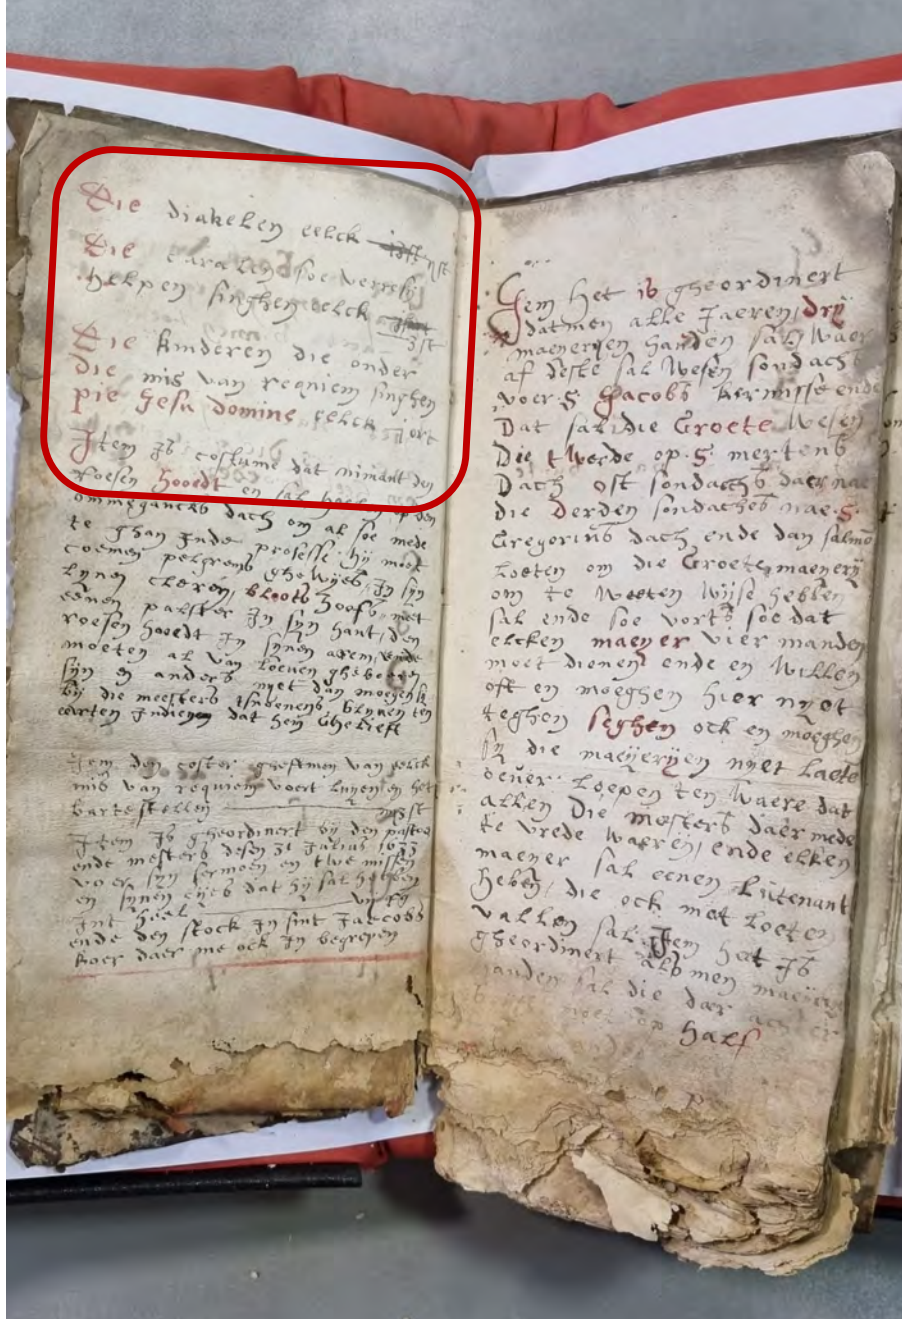 Die diakelen eelck 1 st
Die coralen soe verre sij
helpen singhen eelck 3 st
Die kinderen die onder
die mis van requiem singhen
pie Jesu domine eelck j ort
Item Is costume dat nimant den
Roesen hooedt en sal op den
ommeganckx dach om al soe mede
te ghan Inde prosesse hij moet
coemen pelgroms ghewijes In sijn
lynen cleren, bloots hoofs met
eenen palster In sijn hant, den
roesen hooedt In synen arem, ende
moeten al van Loeven gheboren
sijn en anders nyet dan moegen
bij die meesters blyven ten
eerten Indienen dat hem ghelieft
Item den coster gheeftmen van eelck
mis van requiem voert luyen en het
barte stellen st
Item Is gheordinert bij den pastoe
ende mesters desen 31 Julius 1633
voer sijn sermoen en twe missen
en synen eijes dat hij sal hebben
Int heel vij
ende den stock In sint Jaecobs
koer daer me ock In begrepen
Item het is gheordinert
datmen alle Jaeren, drij
maeneryen handen sal, waer
af deste sal wesen sondachs
voer S Jacobs kermisse ende
Dat sal die Groete wesen
Die twerde op S mertens
Dach oft sondachs daer nae
die derden sondaches nae S
Gregorius dach ende dan salmen
Loeten om die Groete maenerij
om te weeten wijse hebben
sal ende soe vorts soe dat
elcken maeyer vier manden
moet dienen ende en willen
oft en moeghen hier nyet
teghen seghen ock en moeghen
sij die maeijerijen nyet laete
oeuer loepen ten waere dat
allen Die mesters daer mede
te vrede waeren, ende elken
maeyer sal eenen Lutenant
heben, die ock met Loeten
vallen sal. Item het Is
gheordinert als men maeijers
handen sal die daer achter
moet op half